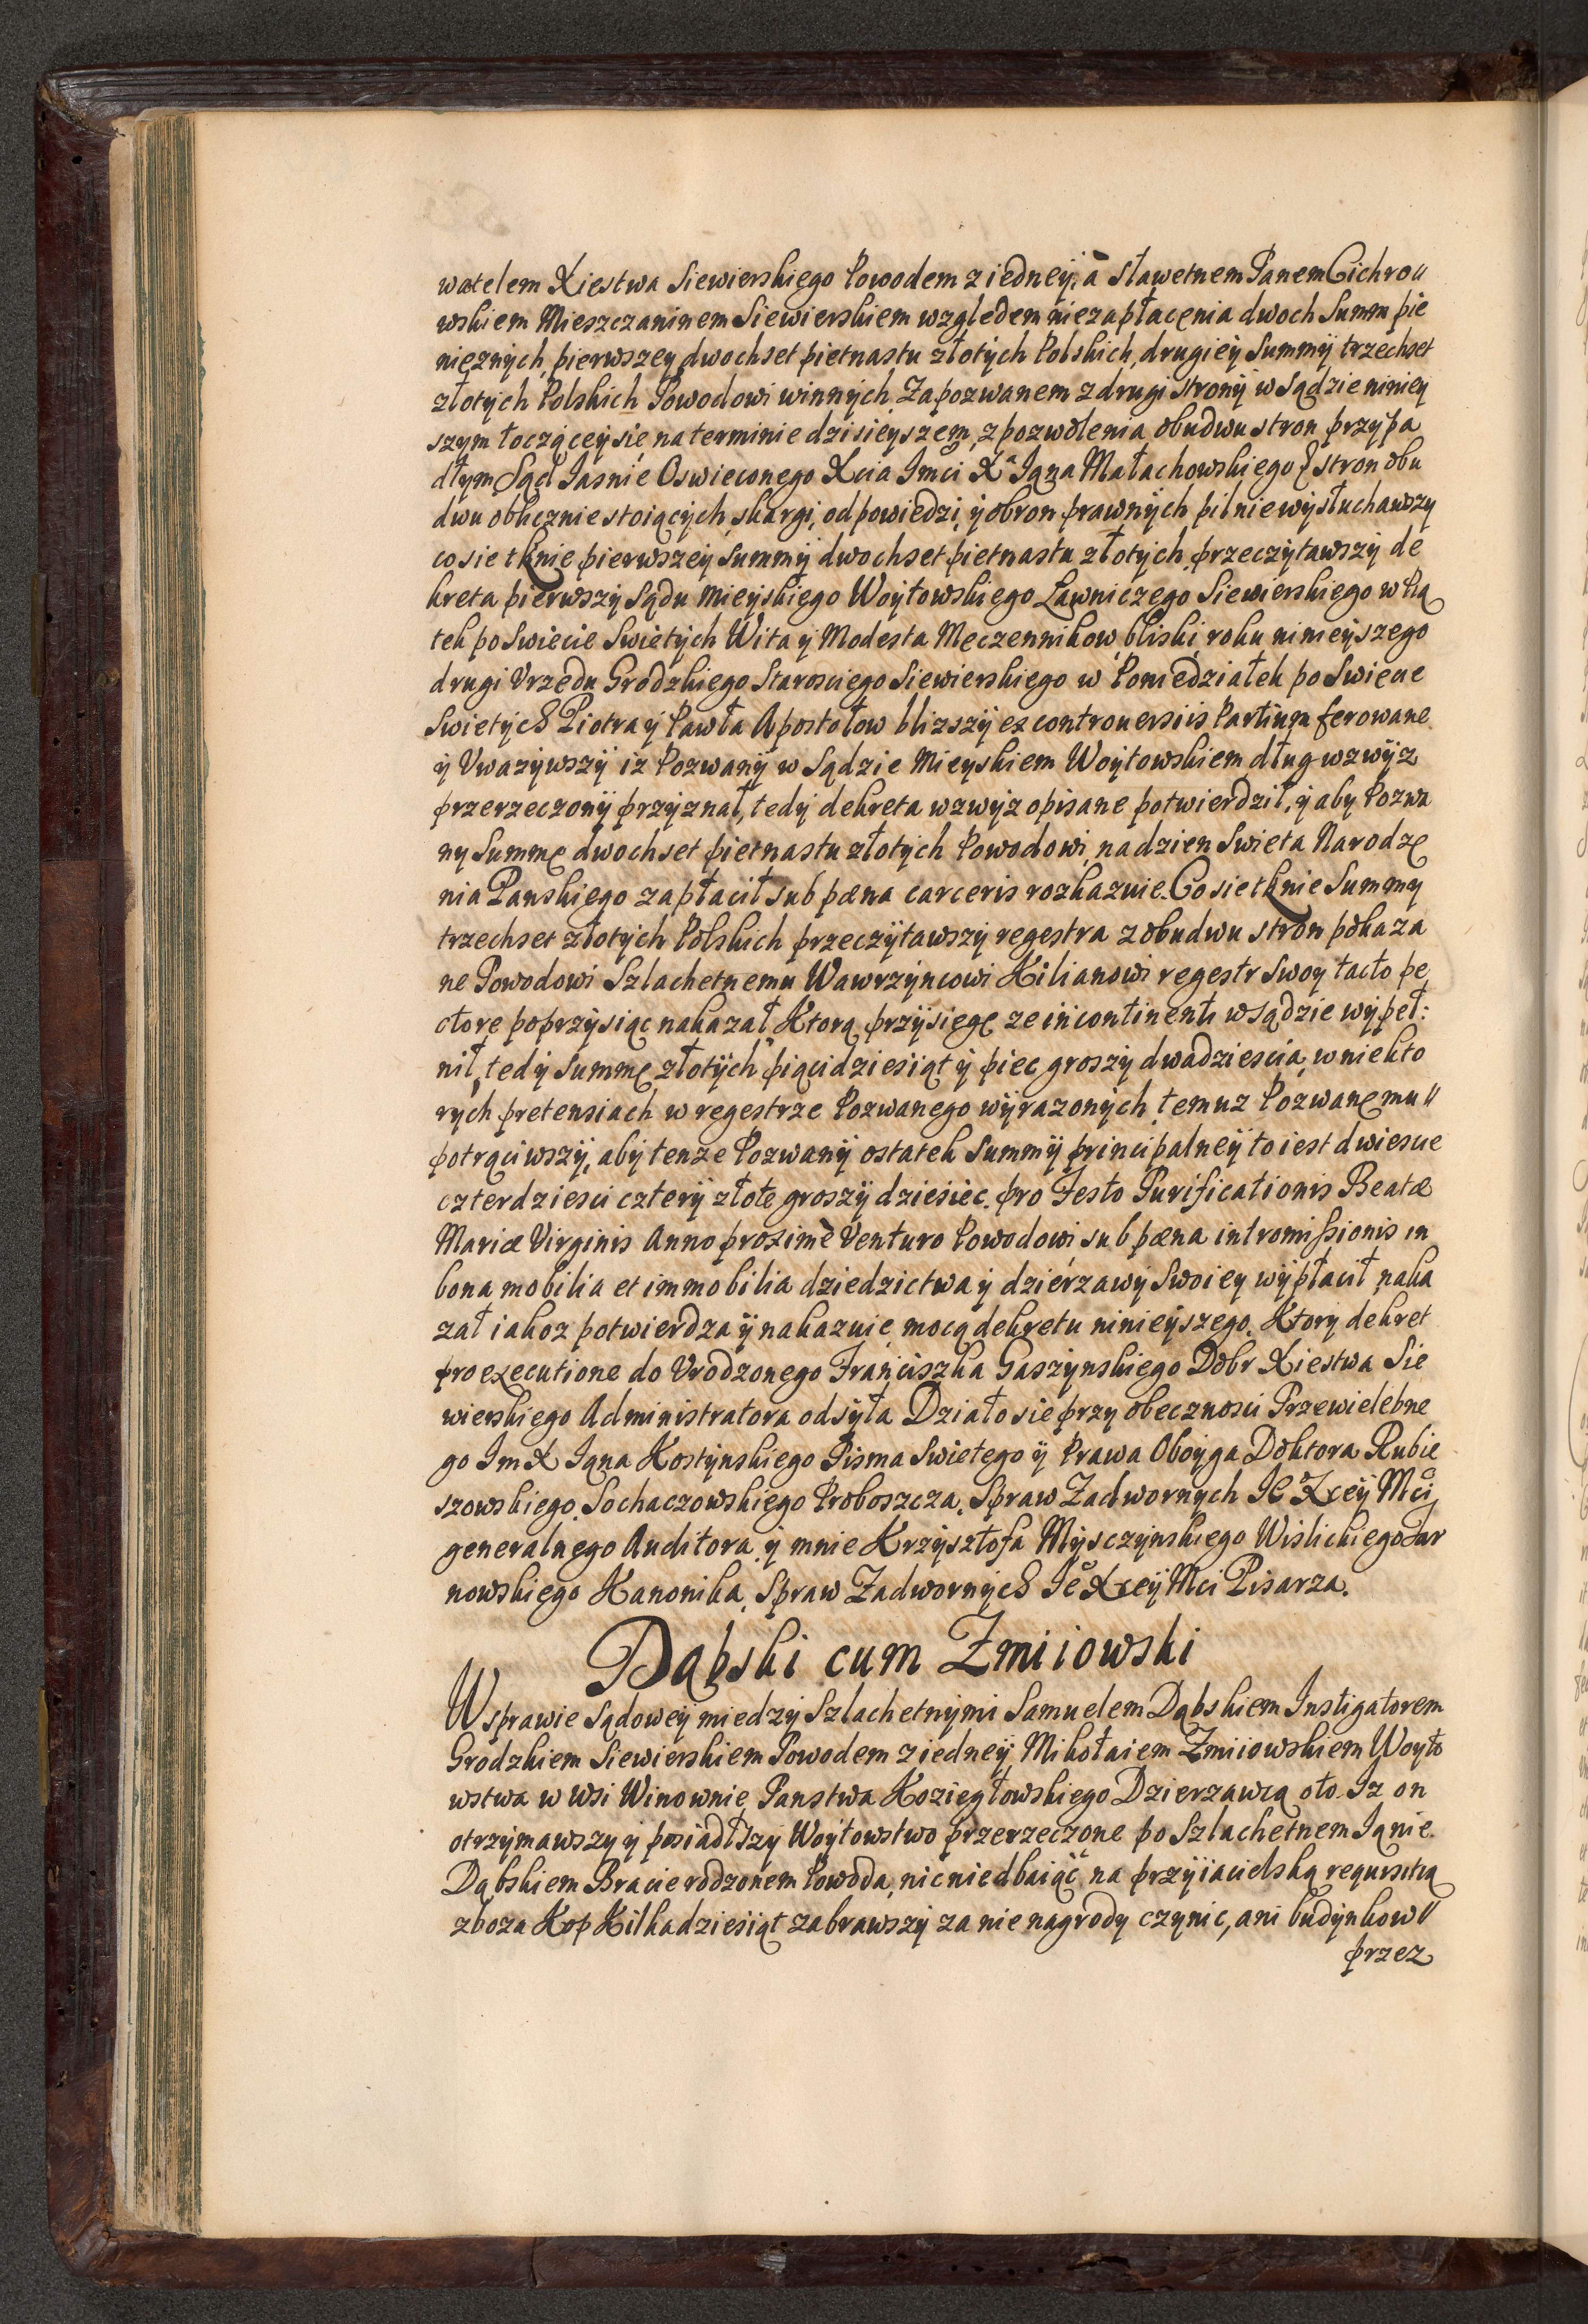 watelem Xiestwa Siewierskiego Powodem z iedneÿ, á Sławetnem Panem Cichro//
wskiem Mieszczaninem Siewierskiem względem niezapłacenia dwoch Summ pie
nięznÿch, pierwszey dwochset pietnastu złotÿch Polskich, drugieÿ Summÿ trzechset
złotÿch Polskich Powodowi winnÿch, Zapozwanem z drugi Stronÿ w Sądzie niniey
szym toczącey się, na terminie dzisieyszem, z pozwolenia obudwu stron przypa
dłym Sąd Iasnie Oswieconego Xcia Imci Xa Iana Małachowskiego z stron obu
dwu oblicznie stoiących, skargi, odpowiedzi, ÿ obron prawnÿch pilnie wÿsłuchawszy
co sie tknie pierwszeÿ Summÿ dwochset pietnastu złotÿch, przeczÿtawszÿ de
kreta pierwszÿ Sądu Mieyskiego Woytowskiego Ławniczego Siewierskiego w Pią
tek po Swiecie Swietÿch Wita ÿ Modesta Meczennikow bliski, roku ninieÿszego
drugi Vrzedu Grodzkiego Starosciego Siewierskiego w Poniedziałek po Swiecie
Swietÿch Piotra ÿ Pawła Apostołow blizszÿ ex controuersiis Partium ferowane
ÿ Vwazÿwszÿ iz Pozwanÿ w Sądzie Mieyskiem Woÿtowskiem dług wzwÿz
przerzeczonÿ przÿznał, tedÿ dekreta wzwÿz opisane potwierdził, ÿ aby Pozwa
ny Summę dwochset pietnastu złotÿch Powodowi, na dzien Swieta Narodze
nia Panskiego zapłacił sub pæna carceris rozkazuie. Co sie tknie Summy
trzechset złotÿch Polskich przeczÿtawszÿ regestra z obudwu stron pokaza
ne Powodowi Szlachetnemu Wawrzÿncowi Kilianowi regestr Swoy tacto pe
ctore poprzysiąc nakazał, Ktorą przÿsiegę ze incontinenti w sądzie wÿpeł:
nił, tedÿ Summę złotÿch piącidziesiąt ÿ piec groszÿ dwadziescia, w niekto
rÿch pretensiach w regestrze Pozwanego wÿrazonÿch, temuz Pozwanemu//
potrąciwszÿ, abÿ tenze Pozwanÿ ostatek Summÿ principalneÿ to iest dwiescie
czterdziesci czterÿ złote groszÿ dziesiec. pro Festo Purificationis Beatæ
Mariæ Virginis Anno proximè Venturo Powodowi, sub pæna intromissionis in
bona mobilia et immobilia dziedzictwa ÿ dzierzawÿ Swoiey wÿpłacił, naka
zał iakoz potwierdza ÿ nakazuie mocą dekretu ninieÿszego. Ktory dekret
pro executione do Vrodzonego Franciszka Gaszynskiego Dobr Xiestwa Sie
wierskiego Administratora odsÿła. Działo sie przy obecznosci Przewielebne
go Im X Iana Kostÿnskiego Pisma Swietego ÿ Prawa Oboÿga Doktora Rubie
szowskiego, Sochaczowskiego Proboszcza, Spraw Zadwornych Ie Xceÿ Mci
generalnego Auditora, ÿ mnie Krzÿsztofa Mÿsczÿnskiego Wislickiego Tar
nowskiego Kanonika, Spraw Zadwornÿch Ie Xceÿ Mci Pisarza.
Dąbski cum Zmiiowski
W sprawie Sądoweÿ miedzÿ Szlachetnÿmi Samuelem Dąbskiem Instigatorem
Grodzkiem Siewierskiem Powodem z iedneÿ, Mikołaiem Zmiiowskiem Woyto
wstwa w Wsi Winownie Panstwa Koziegłowskiego Dzierzawcą oto. Iz on
otrzÿmawszy ÿ posiadłszÿ Woytowstwo przerzeczone po Szlachetnem Ianie
Dąbskiem Bracie rodzonem Powoda, nic niedbaiąc na przÿiacielską requisitią
zboza Kop Kilkadziesiąt zabrawszÿ za nie nagrody czynic, ani budÿnkow//
przez